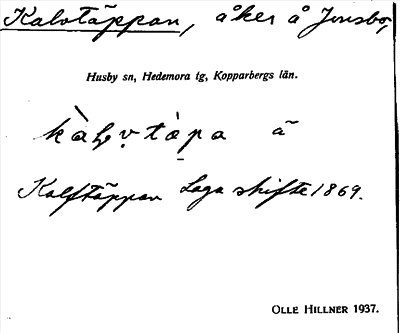 Kalvtäppan, åker å Jonsbo,
Husby sn, Hedemora tg, Kopparbergs län.
kàḷv̥tàpa ã
Kalftäppan Laga skifte 1869.
OLLE HILLNER 1937.